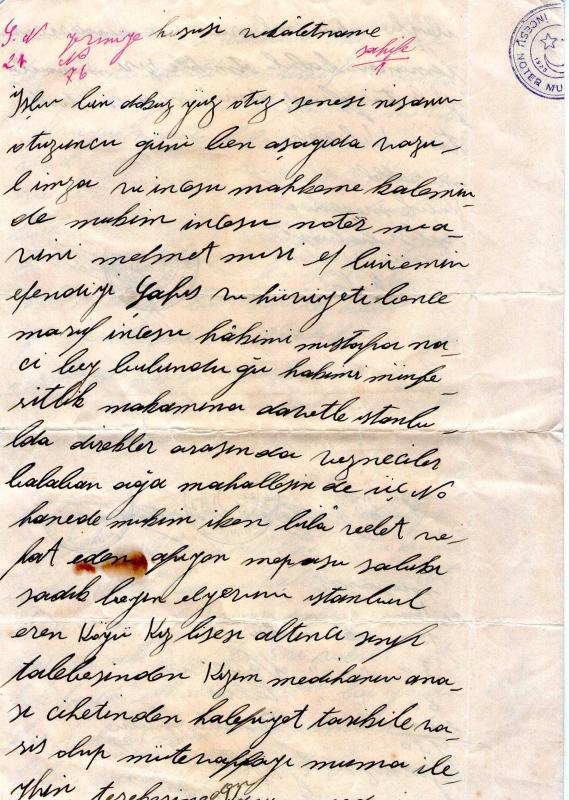 G. N yevmiye hususi vekâletname sahife
21 No 76 1
INCESU NOTER MU
1925
İşbu bin dokuz yüz otuz senesi nisanın
otuzuncu günü ben aşağıda vazu-
l imza ve incesu mahkeme kalemin-
de mukim incesu noter mua-
vini mehmet nuri ef bin emin
efendiyi şahıs ve hüviyeti bence
maruf incesu hâkimi mustafa na-
ci bey bulunduğu hakimi münfe-
ritlik makamına davetle istanbu-
lda direkler arasında vezneciler
balaban ağa mahallesin de üç No
hanede mukim iken bilâ velet ve-
fat eden afiyon mepusu sabıkı
sadık beyin elyevm istanbul
eren Köyü Kız lisesi altıncı sınıf
talebesinden Kızım medihanın ana-
sı cihetinden halefiyet tarikile va-
ris olup müteveffayı muma ile-
yhin